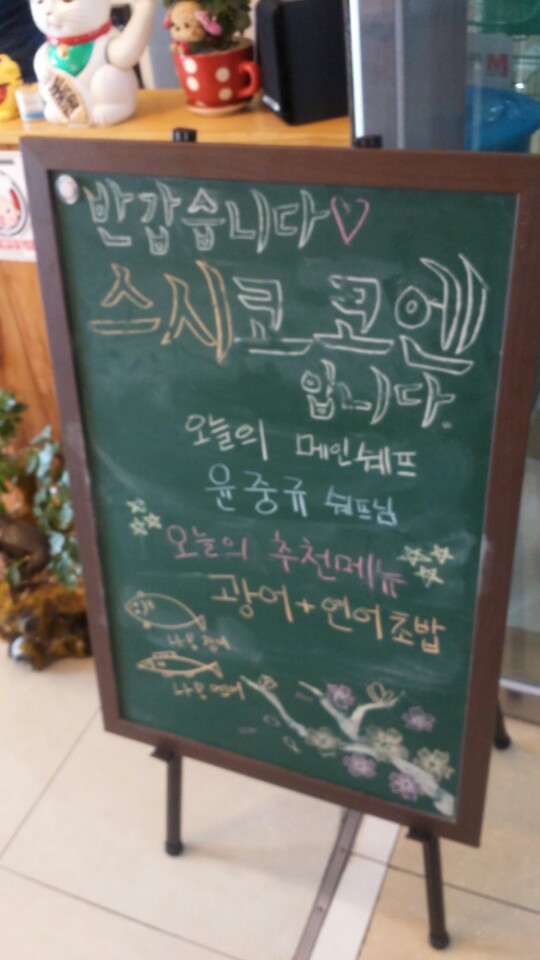 반갑습니다♡
스시코코엔
입니다.
오늘의 메인쉐프
윤중규 쉐프님
오늘의 추천메뉴
광어+연어초밥
나는 광어
나는 연어